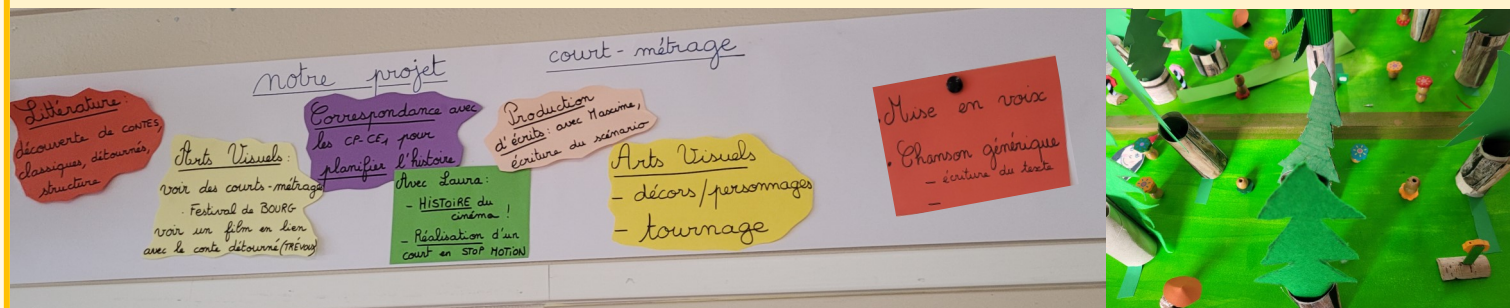 notre projet court-métrage
Littérature :
découverte de CONTES,
classiques, détournés,
structure
Arts Visuels :
voir des courts-métrages
- Festival de BOURG
voir un film en lien
avec le conte détourné (TRÉVOUX)
Correspondance avec
les CP-CE1 pour
planifier l'histoire
Avec Laura :
- HISTOIRE du
cinéma !
- Réalisation d'un
court en STOP MOTION
Production
d'écrits : avec Maxime,
écriture du scénario
Arts Visuels
- décors/personnages
- tournage
. Mise en voix
. Chanson générique
- écriture du texte
-